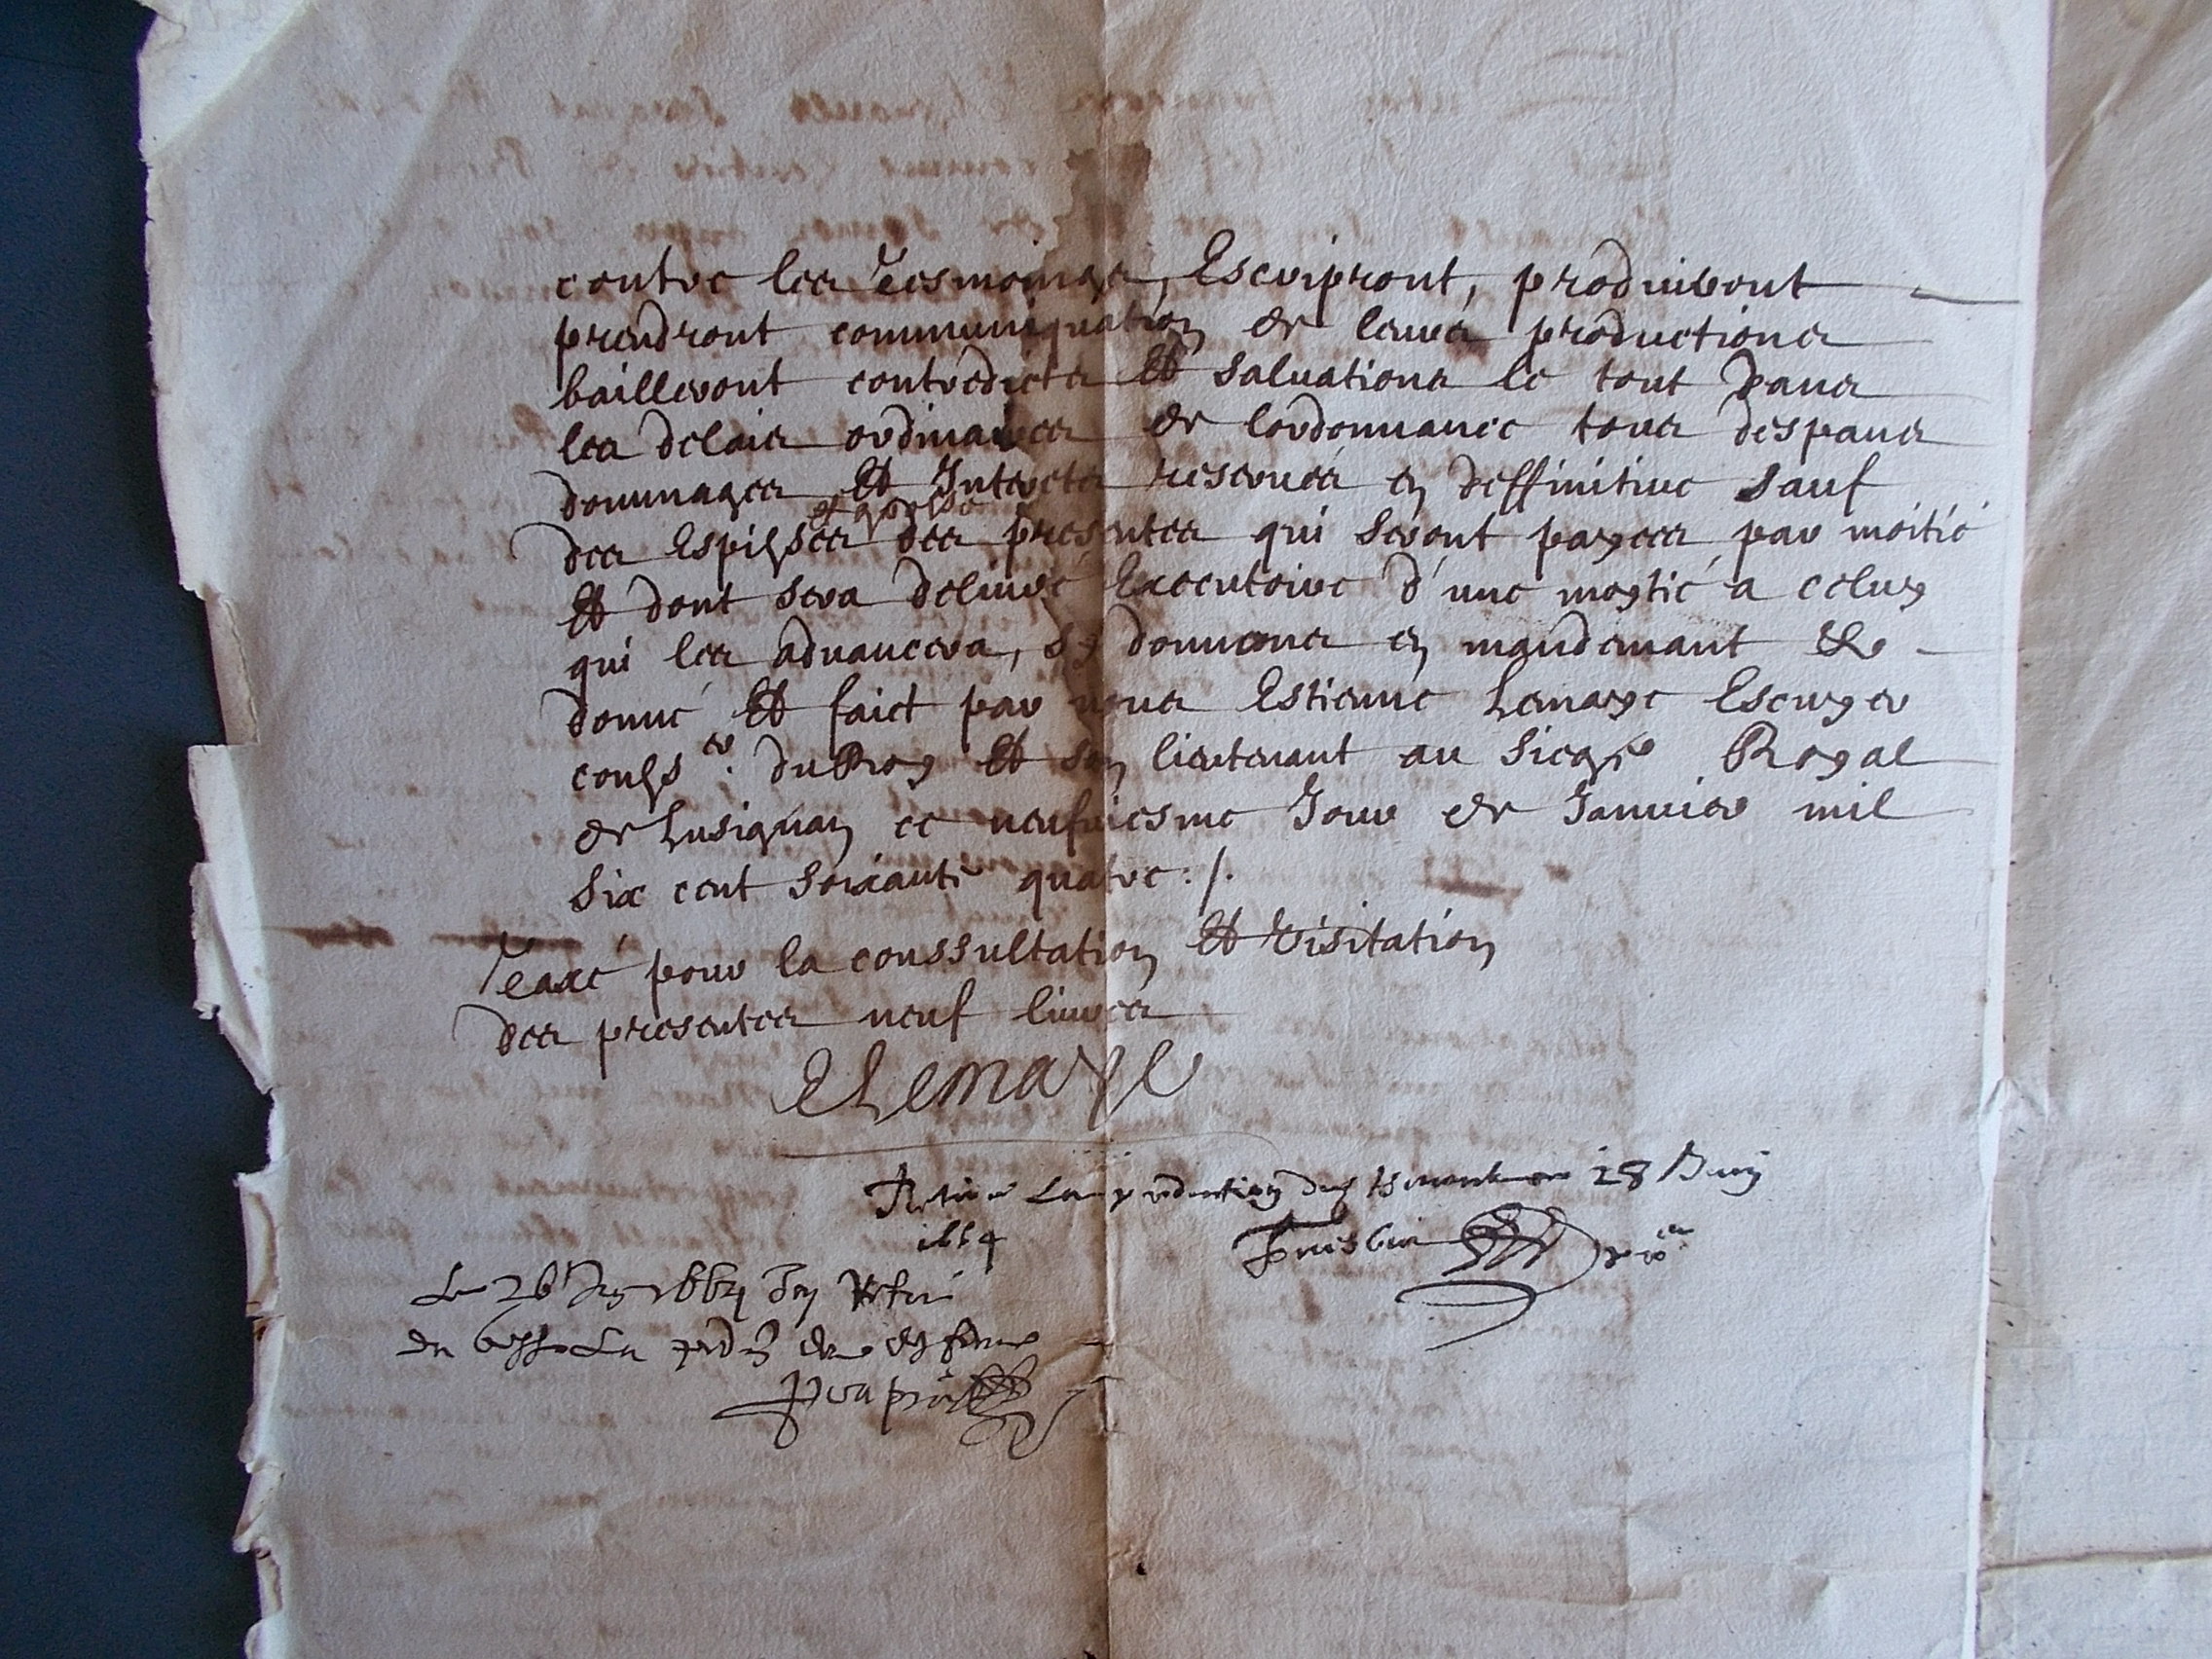 contre les tesmoings, Escripront, produiront
prendront communiquation de leurs productions
bailleront contredicts Et saluations le tout dans
les delais ordinaires de lordonnance tous despans
dommages Et Interets reserués en deffinitiue sauf
et
des Espisses des presentes qui seront payees par moitié
Et dont sera deliuré Executoire d'une moytié a celuy
qui les aduancera, sy donnons en mandemant &c
donné Et faict par nous Estienne Lemaye Escuyer
conser. du Roy Et son lieutenant au siege Royal
de Lusignan ce neufuiesme Jour de Januier mil
six cent soixante quatre :/.
Taxé pour la conssultation Et Visitation
des presentes neuf liures
ELemaye
Retiré La production du 28
1664
Le 26 1664 Jay Retiré
du La